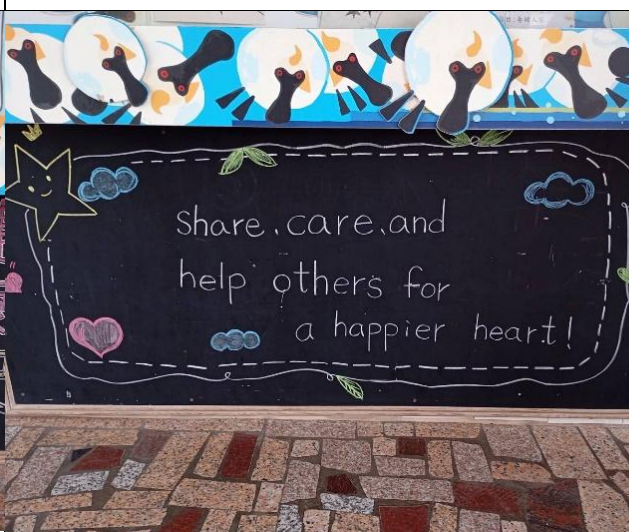 Share、care、and
help others for
a happier heart!